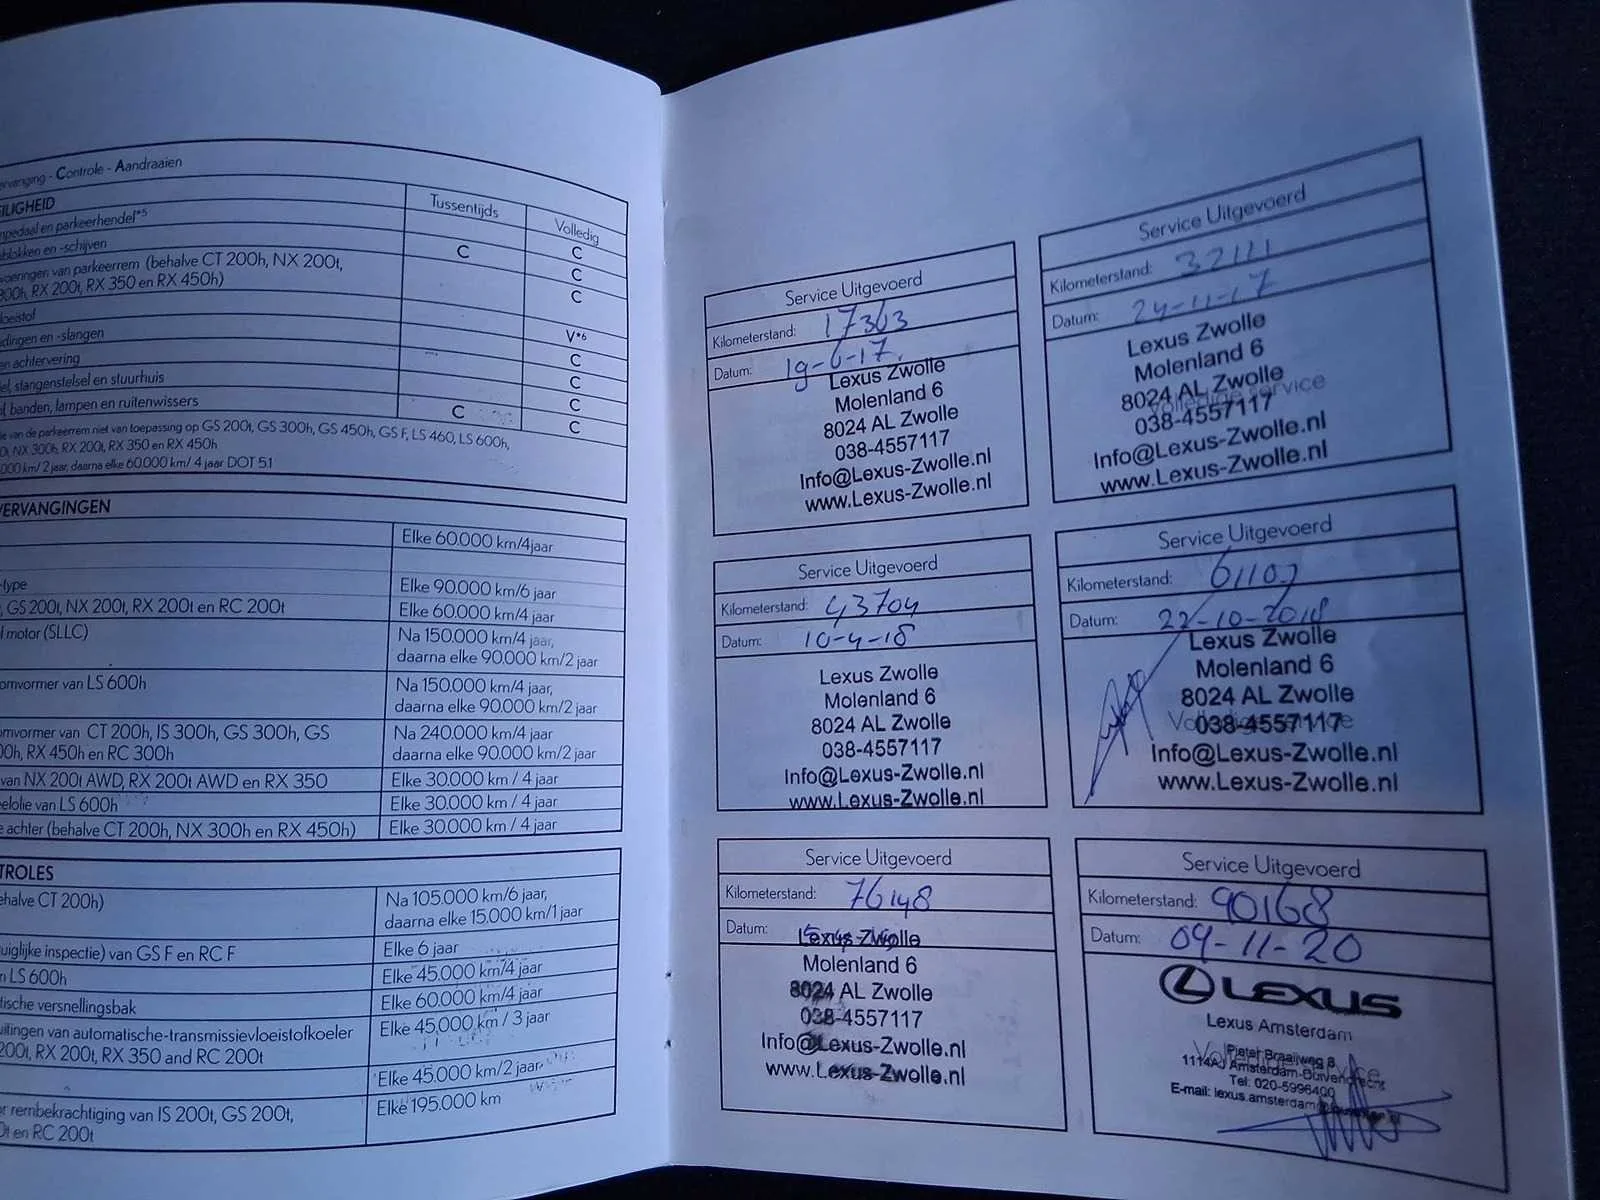 ervanging - Controle - Aandraaien
EILIGHEID
Tussentijds
Volledig
mpedaal en parkeerhendel*5
C
blokken en -schijven
C
C
voeringen van parkeerrem (behalve CT 200h, NX 200t,
300h, RX 200t, RX 350 en RX 450h)
C
C
loeistof
V*6
dingen en -slangen
C
en achtervering
C
el, stangenstelsel en stuurhuis
C
banden, lampen en ruitenwissers
C
C
ie van de parkeerrem niet van toepassing op GS 200t, GS 300h, GS 450h, GS F, LS 460, LS 600h,
NX 300h, RX 200t, RX 350 en RX 450h
000 km/ 2 jaar, daarna elke 60.000 km/ 4 jaar DOT 5.1
VERVANGINGEN
Elke 60.000 km/4jaar
-type
Elke 90.000 km/6 jaar
, GS 200t, NX 200t, RX 200t en RC 200t
Elke 60.000 km/4 jaar
l motor (SLLC)
Na 150.000 km/4 jaar,
daarna elke 90.000 km/2 jaar
omvormer van LS 600h
Na 150.000 km/4 jaar,
daarna elke 90.000 km/2 jaar
omvormer van CT 200h, IS 300h, GS 300h, GS
00h, RX 450h en RC 300h
Na 240.000 km/4 jaar
daarna elke 90.000 km/2 jaar
van NX 200t AWD, RX 200t AWD en RX 350
Elke 30.000 km / 4 jaar
eelolie van LS 600h
Elke 30.000 km / 4 jaar
e achter (behalve CT 200h, NX 300h en RX 450h)
Elke 30.000 km / 4 jaar
TROLES
ehalve CT 200h)
Na 105.000 km/6 jaar,
daarna elke 15.000 km/1 jaar
uiglijke inspectie) van GS F en RC F
Elke 6 jaar
n LS 600h
Elke 45.000 km/4 jaar
tische versnellingsbak
Elke 60.000 km/4 jaar
uitingen van automatische-transmissievloeistofkoeler
200t, RX 200t, RX 350 and RC 200t
Elke 45.000 km / 3 jaar
Elke 45.000 km/2 jaar
r rembekrachtiging van IS 200t, GS 200t,
0t en RC 200t
Elke 195.000 km
Service Uitgevoerd
Kilometerstand: 17363
Datum: 19-6-17.
Lexus Zwolle
Molenland 6
8024 AL Zwolle
038-4557117
Info@Lexus-Zwolle.nl
www.Lexus-Zwolle.nl
Service Uitgevoerd
Kilometerstand: 32111
Datum: 24-11-17
Lexus Zwolle
Molenland 6
8024 AL Zwolle
Volledige service
038-4557117
Info@Lexus-Zwolle.nl
www.Lexus-Zwolle.nl
Service Uitgevoerd
Kilometerstand: 43704
Datum: 10-4-18
Lexus Zwolle
Molenland 6
8024 AL Zwolle
038-4557117
Info@Lexus-Zwolle.nl
www.Lexus-Zwolle.nl
Service Uitgevoerd
Kilometerstand: 61107
Datum: 22-10-2018
Lexus Zwolle
Molenland 6
8024 AL Zwolle
038-4557117
Info@Lexus-Zwolle.nl
www.Lexus-Zwolle.nl
Service Uitgevoerd
Kilometerstand: 76148
Datum:
Lexus Zwolle
Molenland 6
8024 AL Zwolle
038-4557117
Info@Lexus-Zwolle.nl
www.Lexus-Zwolle.nl
Service Uitgevoerd
Kilometerstand: 90168
Datum: 09-11-20
LEXUS
Lexus Amsterdam
Pieter Braaijweg 8
1114AJ Amsterdam-Duivendrecht
Tel: 020-5996400
E-mail: lexus.amsterdam@